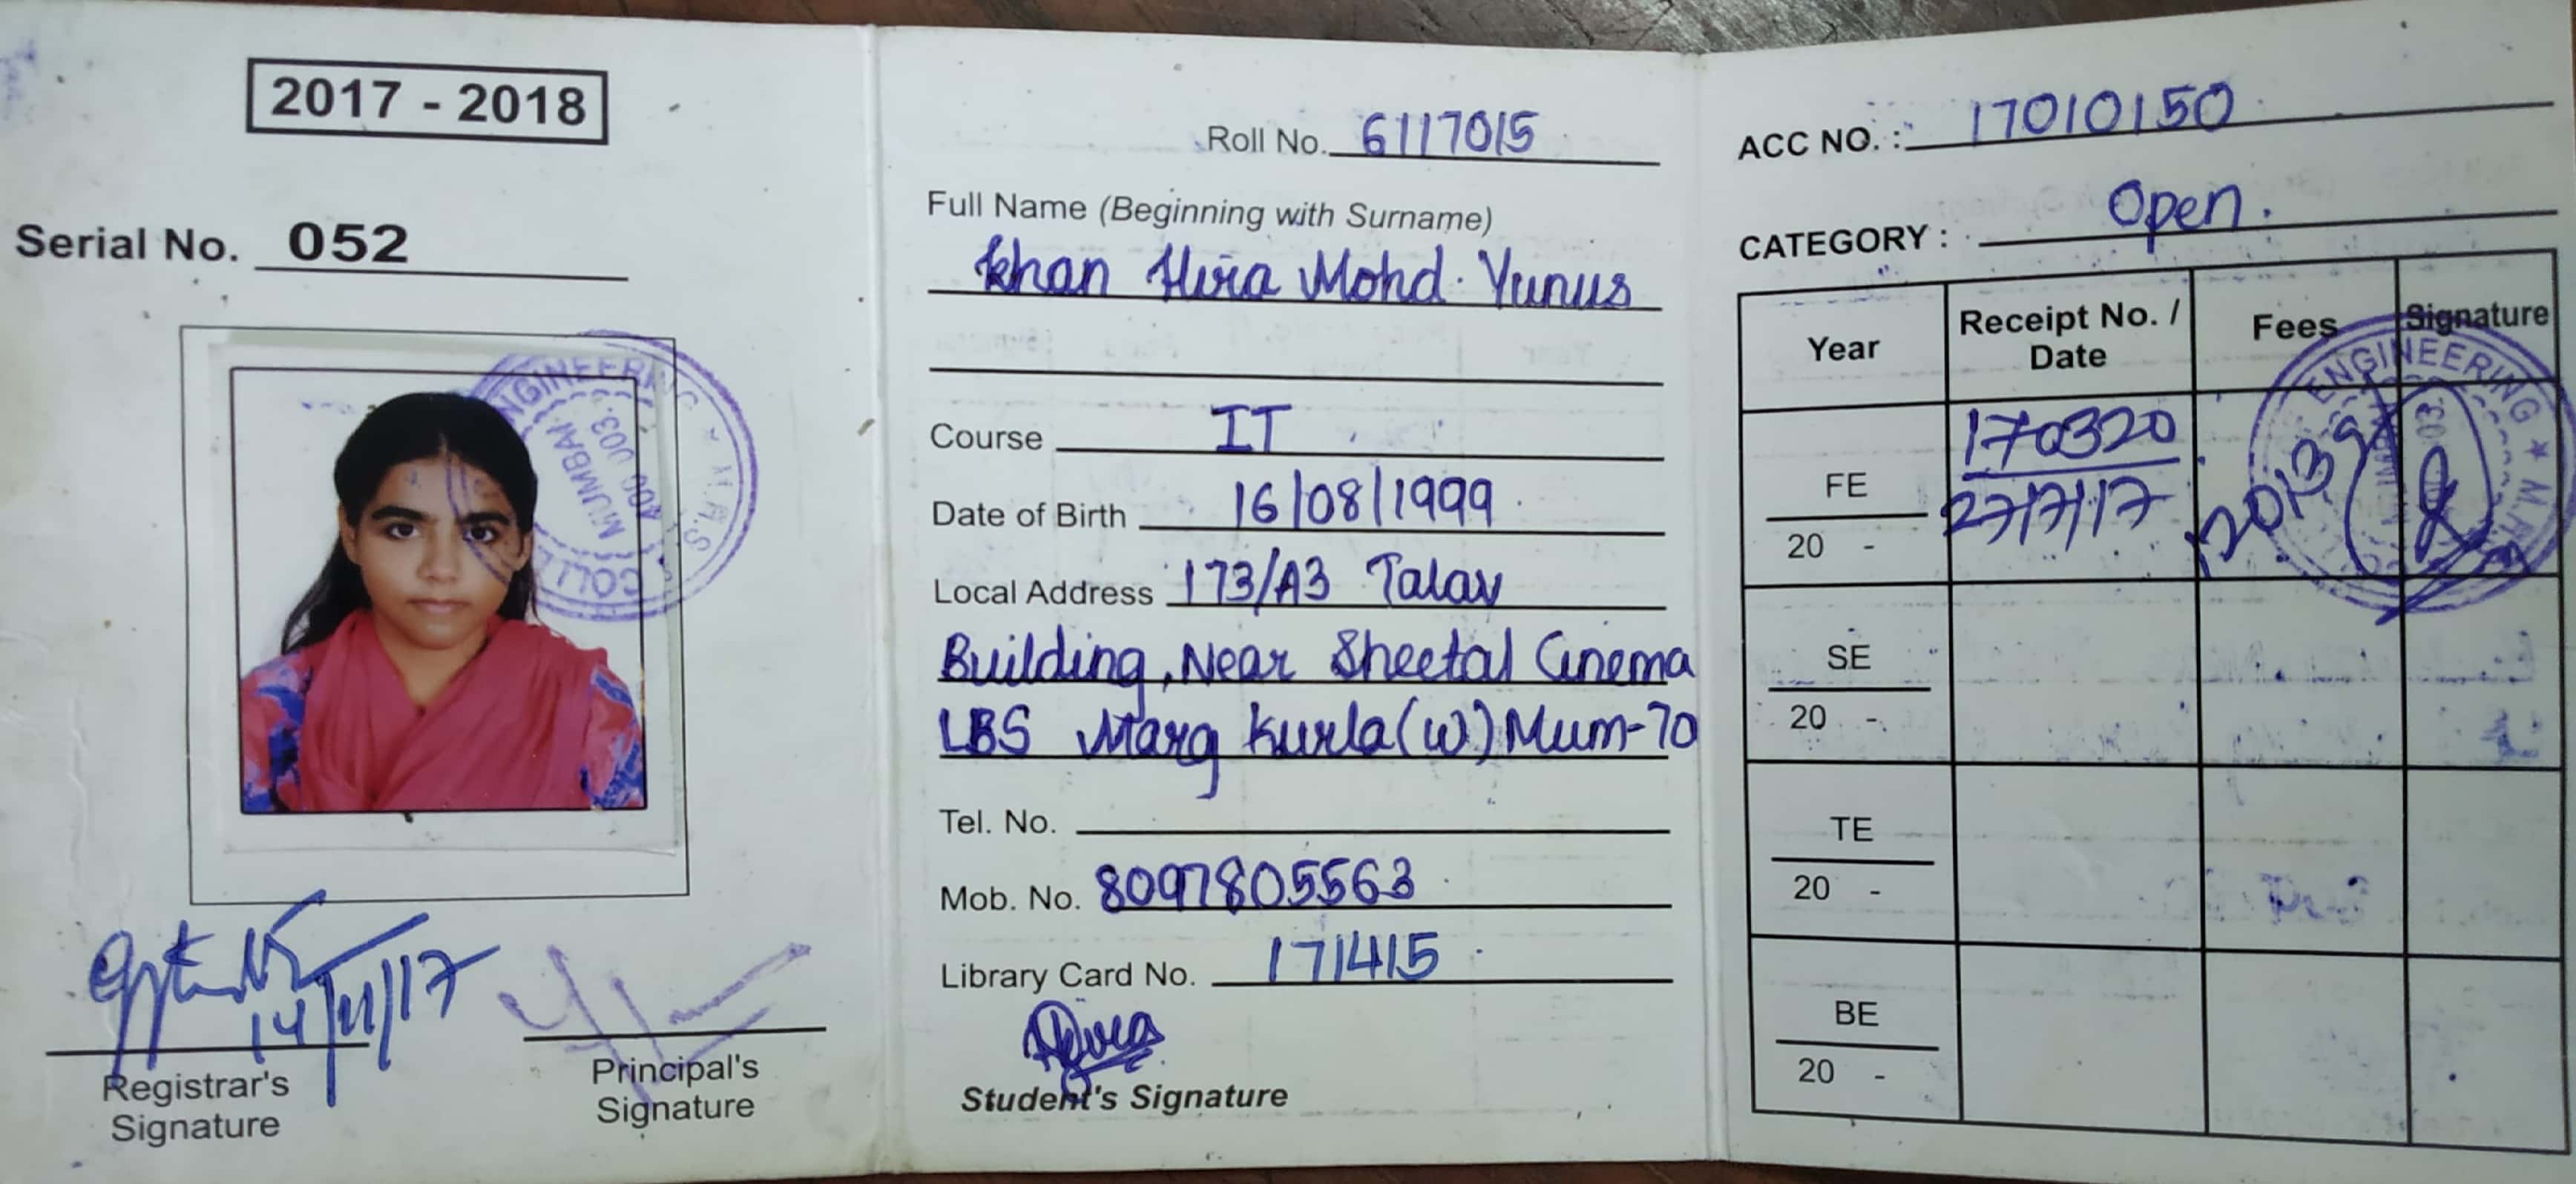 2017 - 2018
Serial No. 052
ENGINEERING
MUMBAI
400 003.
M.H.S.
14/11/17
Registrar's
Signature
Principal's
Signature
Roll No. 6117015
Full Name (Beginning with Surname)
Khan Hira Mohd. Yunus
Course IT
Date of Birth 16/08/1999
Local Address 173/A3 Talav
Building, Near Sheetal Cinema
LBS Marg Kurla(W) Mum-70
Tel. No.
Mob. No. 8097805563
Library Card No. 171415
Student's Signature
ACC NO. : 17010150
CATEGORY : Open.
Year Receipt No. / Date Fees Signature
ENGINEERING
FE 170320
20 - 27/7/17
SE
20 -
TE
20 -
BE
20 -